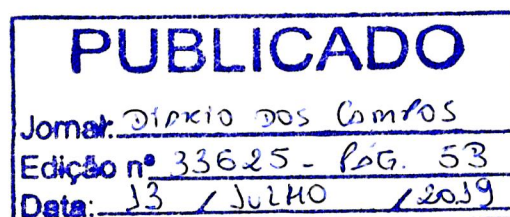 PUBLICADO
Jornal: DIÁRIO DOS CAMPOS
Edição nº 33625 - PÁG. 53
Data: 13 / JULHO / 2019